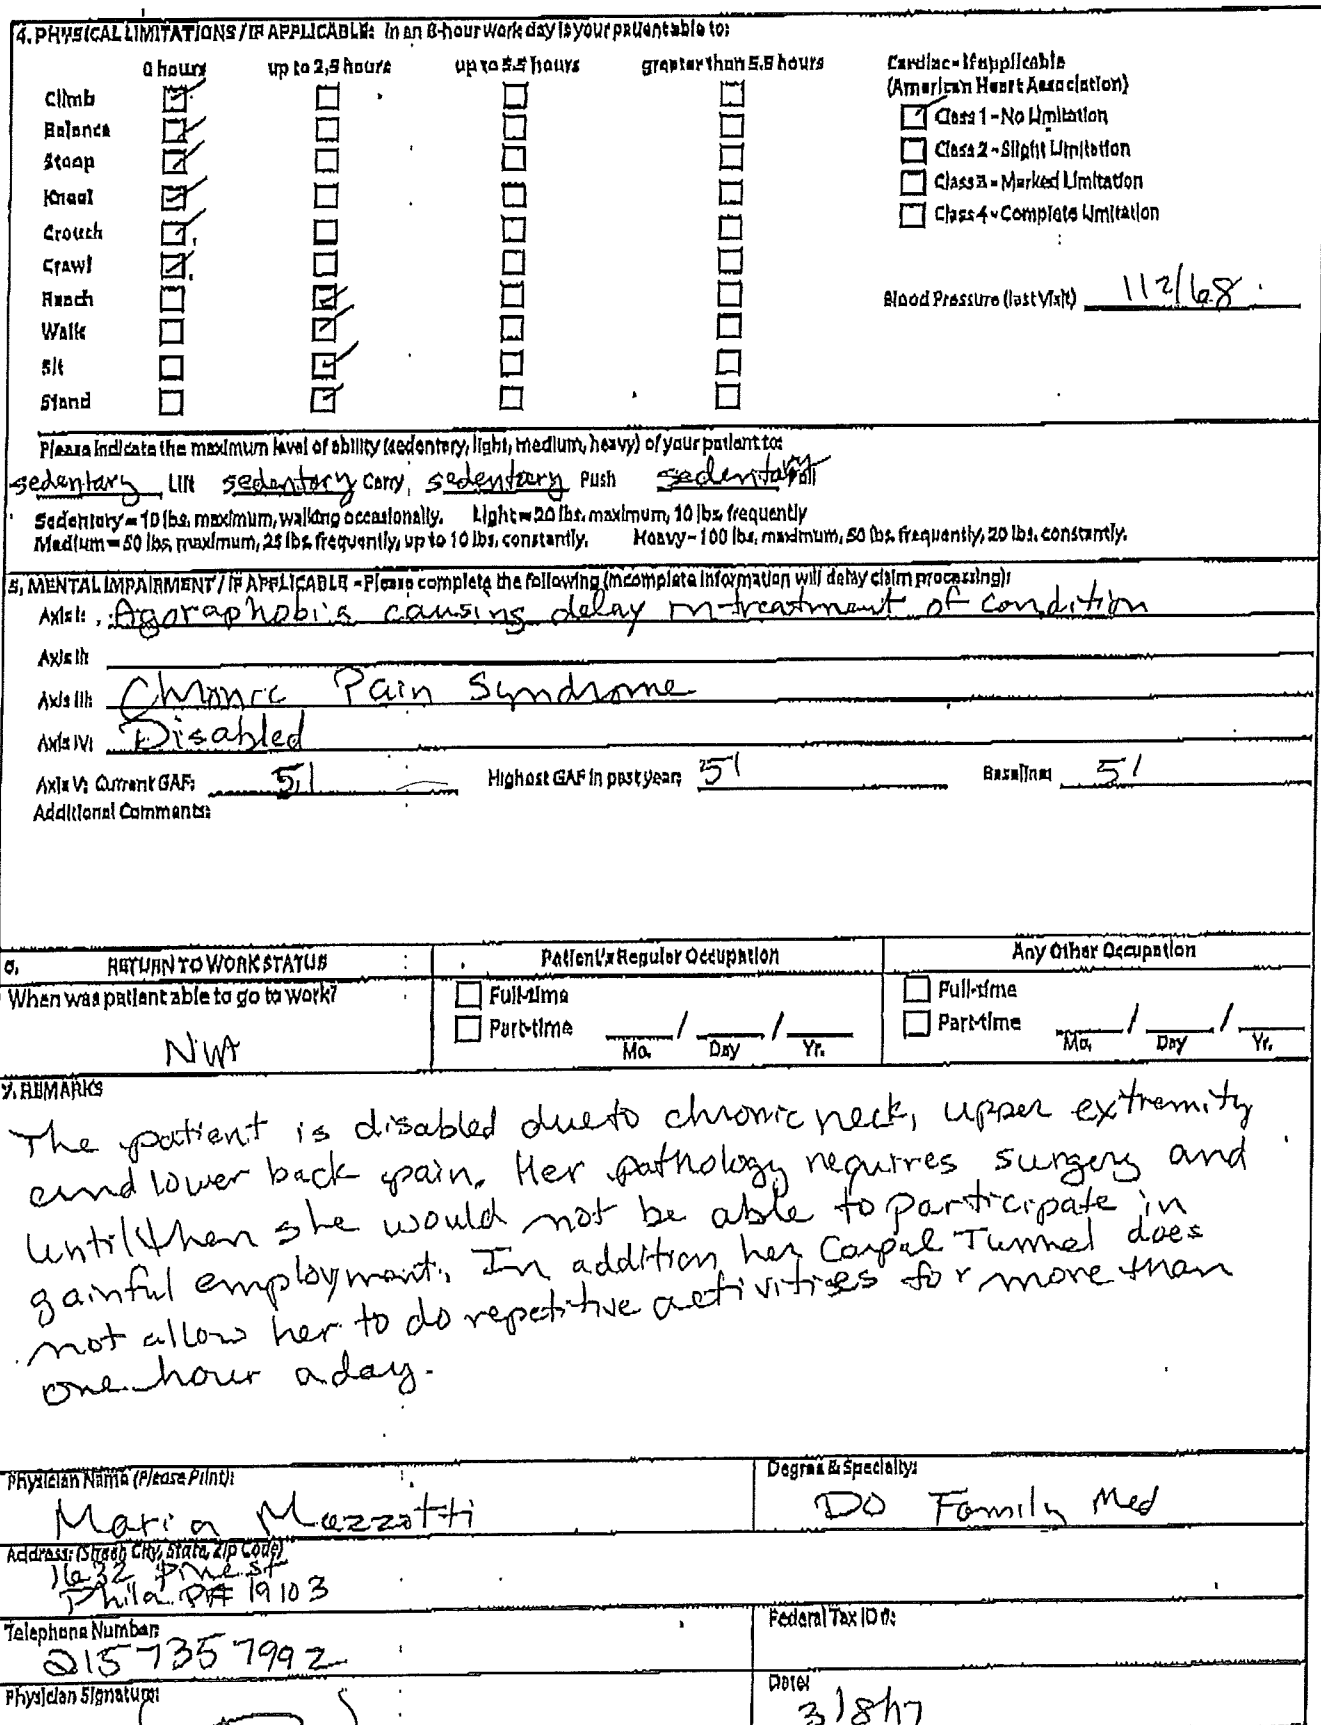 4. PHYSICAL LIMITATIONS / IF APPLICABLE: In an 8-hour work day is your patient able to:
0 hours up to 2.5 hours up to 5.5 hours greater than 5.5 hours Cardiac - If applicable
(American Heart Association)
Climb
Class 1 - No Limitation
Balance
Class 2 - Slight Limitation
Stoop
Class 3 - Marked Limitation
Kneel
Class 4 - Complete Limitation
Crouch
Crawl
Reach Blood Pressure (last Visit) 112/68
Walk
Sit
Stand
Please indicate the maximum level of ability (sedentary, light, medium, heavy) of your patient to:
sedentary Lift sedentary Carry, sedentary Push sedentary Pull
Sedentary = 10 lbs. maximum, walking occasionally. Light = 20 lbs. maximum, 10 lbs. frequently
Medium = 50 lbs. maximum, 25 lbs. frequently, up to 10 lbs. constantly. Heavy - 100 lbs. maximum, 50 lbs. frequently, 20 lbs. constantly.
5. MENTAL IMPAIRMENT / IF APPLICABLE - Please complete the following (incomplete information will delay claim processing):
Axis I: Agoraphobia causing delay in treatment of condition
Axis II:
Axis III: Chronic Pain Syndrome
Axis IV: Disabled
Axis V: Current GAF: 51 Highest GAF in past year: 51 Baseline: 51
Additional Comments:
6. RETURN TO WORK STATUS Patient's Regular Occupation Any Other Occupation
When was patient able to go to work? Full-time Full-time
Part-time / / Part-time / /
Mo. Day Yr. Mo. Day Yr.
7. REMARKS
The patient is disabled due to chronic neck, upper extremity
and lower back pain. Her pathology requires surgery and
until then she would not be able to participate in
gainful employment. In addition her Carpal Tunnel does
not allow her to do repetitive activities for more than
one hour a day.
Physician Name (Please Print): Degree & Specialty:
Maria Mazzotti DO Family Med
Address: (Street, City, State, Zip Code)
1632 Pine St
Phila PA 19103
Telephone Number: Federal Tax ID #:
215 735 7992
Physician Signature: Date:
3/8/17